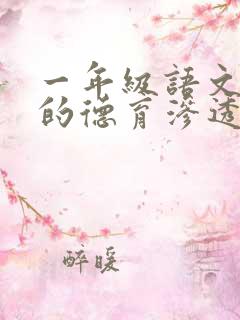 一年级語文
的德育滲透
醉暖